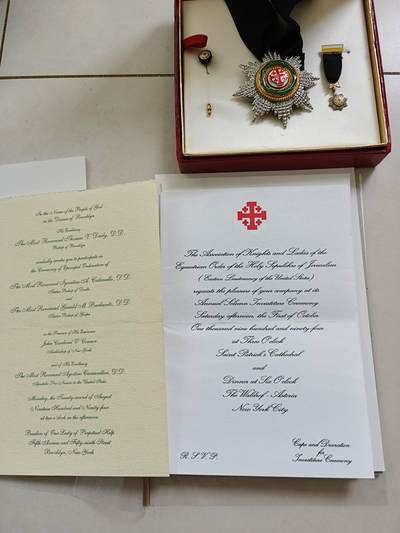 In the Name of the People of God
in the Diocese of Brooklyn
His Excellency
The Most Reverend Thomas V. Daily, D.D.
Bishop of Brooklyn
cordially invites you to participate in
the Ceremony of Episcopal Ordination of
His Excellency
The Most Reverend Ignatius A. Catanello, D.D.
Titular Bishop of
and
The Most Reverend Gerald M. Barbarito, D.D.
Titular Bishop of
in the Presence of His Eminence
John Cardinal O'Connor
Archbishop of New York
and of His Excellency
The Most Reverend Agostino Cacciavillan, D.D.
Apostolic Pro-Nuncio to the United States
Monday, the Twenty-second of August
Nineteen Hundred and Ninety-four
at two o'clock in the afternoon
Basilica of Our Lady of Perpetual Help
Fifth Avenue and Fifty-ninth Street
Brooklyn, New York
The Association of Knights and Ladies of the
Equestrian Order of the Holy Sepulchre of Jerusalem
(Eastern Lieutenancy of the United States)
requests the pleasure of your company at its
Annual Solemn Investiture Ceremony
Saturday afternoon, the First of October
One thousand nine hundred and ninety-four
at Three O'clock
Saint Patrick's Cathedral
and
Dinner at Six O'clock
The Waldorf-Astoria
New York City
R.S.V.P.
Cape and Decoration
for
Investiture Ceremony